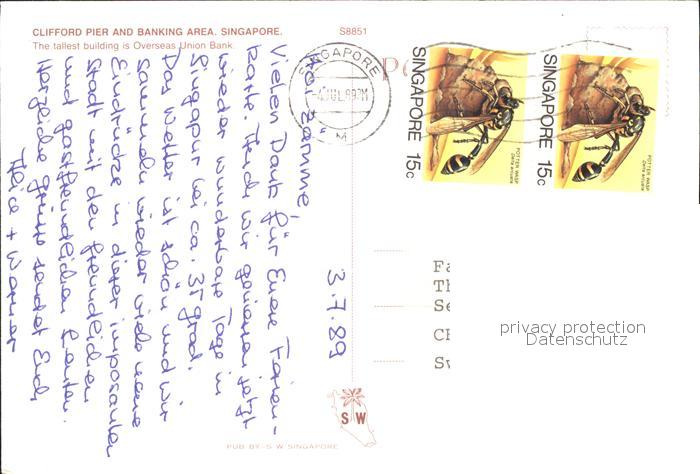 CLIFFORD PIER AND BANKING AREA. SINGAPORE.
The tallest building is Overseas Union Bank.
S8851
SINGAPORE
-4 JUL 89
M
SINGAPORE 15c
POTTER WASP
Delta arcuata
SINGAPORE 15c
POTTER WASP
Delta arcuata
3.7.89
zämme,
Vielen Dank für Eure Ferien-
karte. Auch wir geniessen jetzt
wieder wunderbare Tage in
Singapur bei ca. 35 grad.
Das Wetter ist schön und wir
sammeln wieder viele neue
Eindrücke in dieser imposanten
Stadt mit den freundlichen
und gastfreundlichen Leuten.
Herzliche Grüsse sendet Euch
+ Werner
Fa
Th
Se
CH
Sw
privacy protection
Datenschutz
S W
PUB BY-S W SINGAPORE